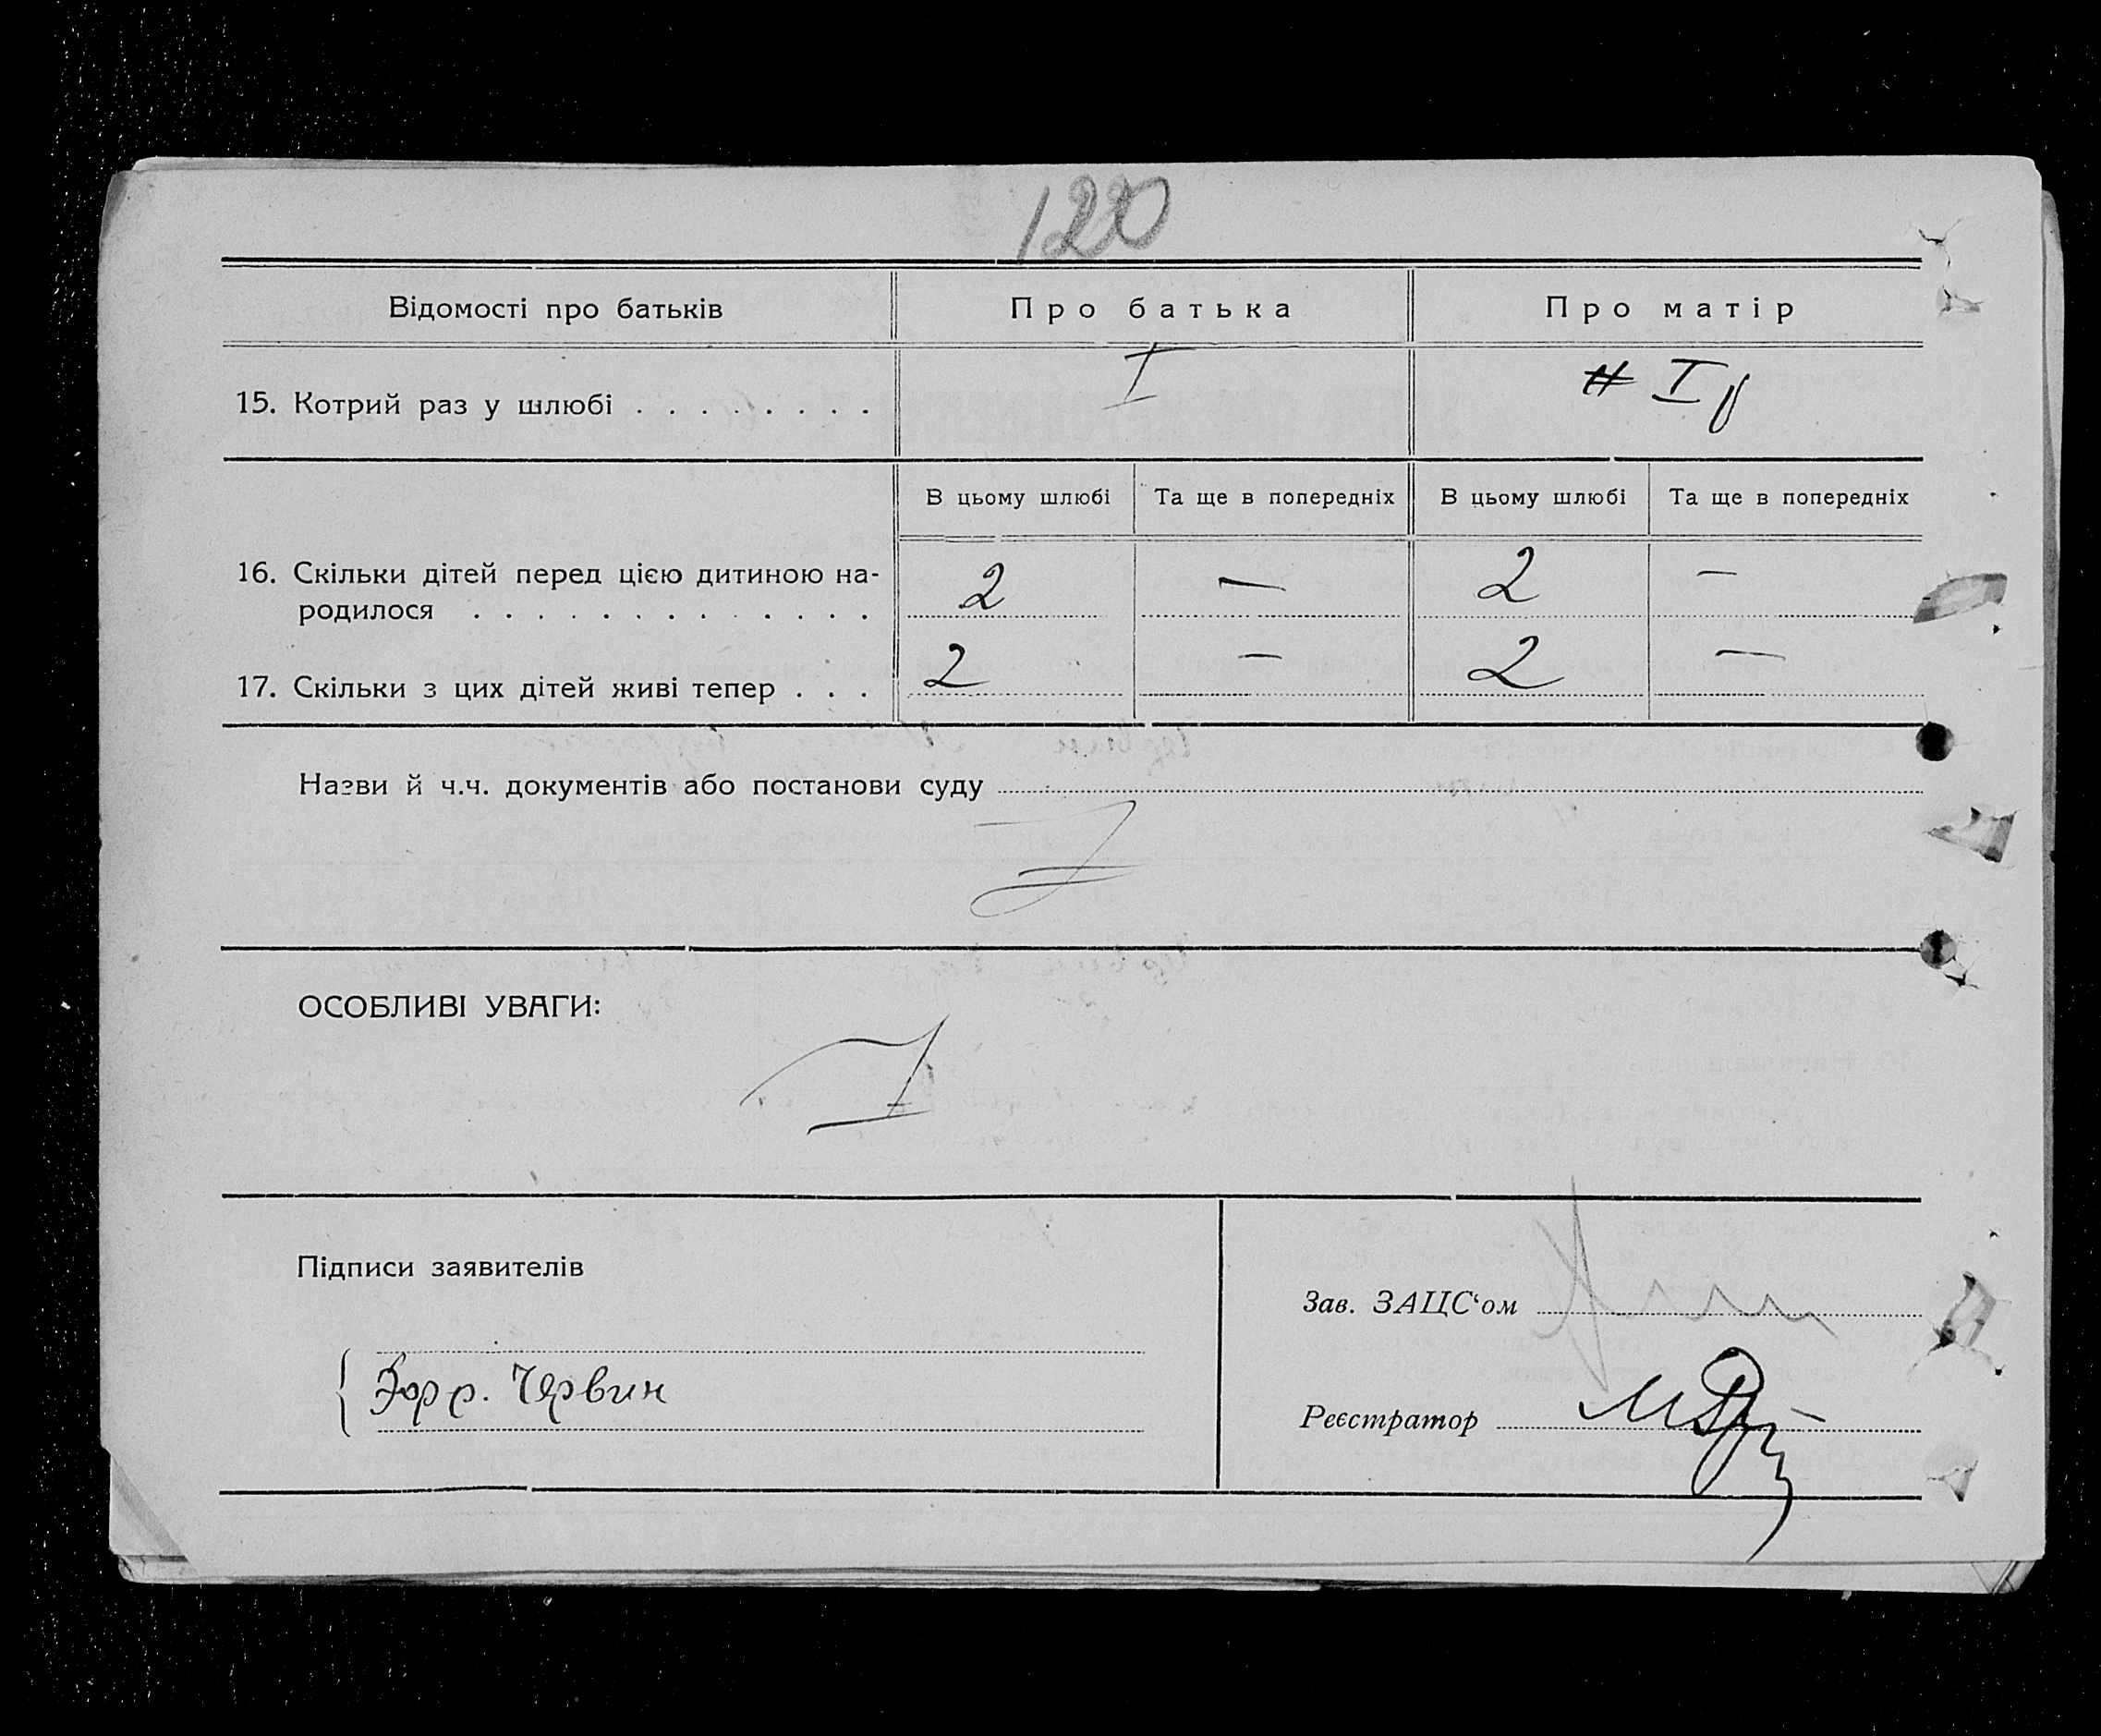 120
Відомості про батьків Про батька Про матір
15. Котрий раз у шлюбі . . . . . . . . I I
В цьому шлюбі Та ще в попередніх В цьому шлюбі Та ще в попередніх
16. Скільки дітей перед цією дитиною на-
родилося . . . . . . . . . . . . . . 2 — 2 —
17. Скільки з цих дітей живі тепер . . . 2 — 2 —
Назви й ч.ч. документів або постанови суду
ОСОБЛИВІ УВАГИ:
Підписи заявителів
Зав. ЗАЦС‘ом
Червин
Реєстратор